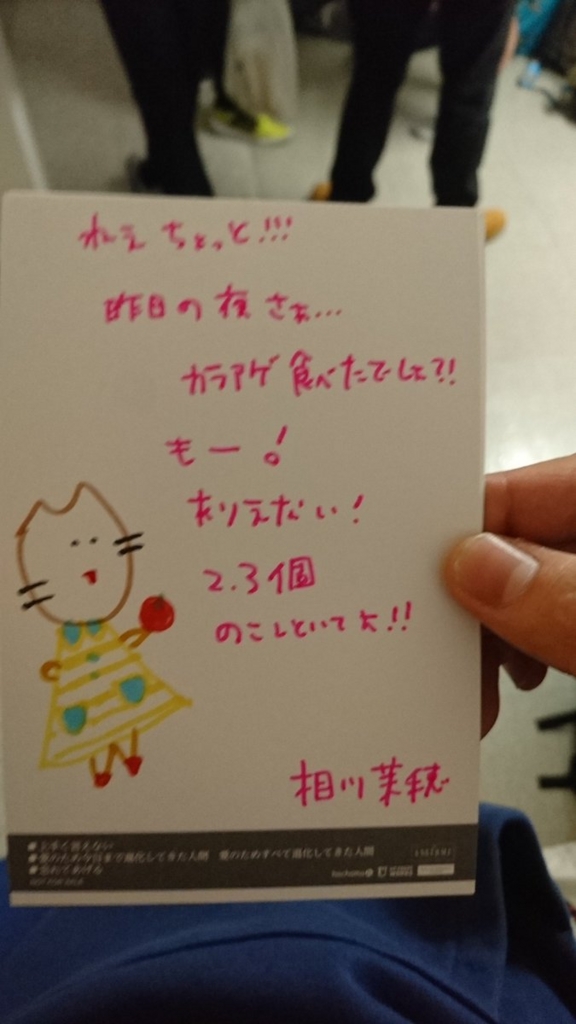 ねえ ちょっと!!!
昨日の夜さぁ...
カラアゲ食べたでしょ?!
もー!
ありえない!
2.3個
のこしといてよ!!
相川茉穂
●上手く言えない
●愛のため今日まで進化してきた人間 愛のためすべて退化してきた人間
●忘れてあげる
NOT FOR SALE